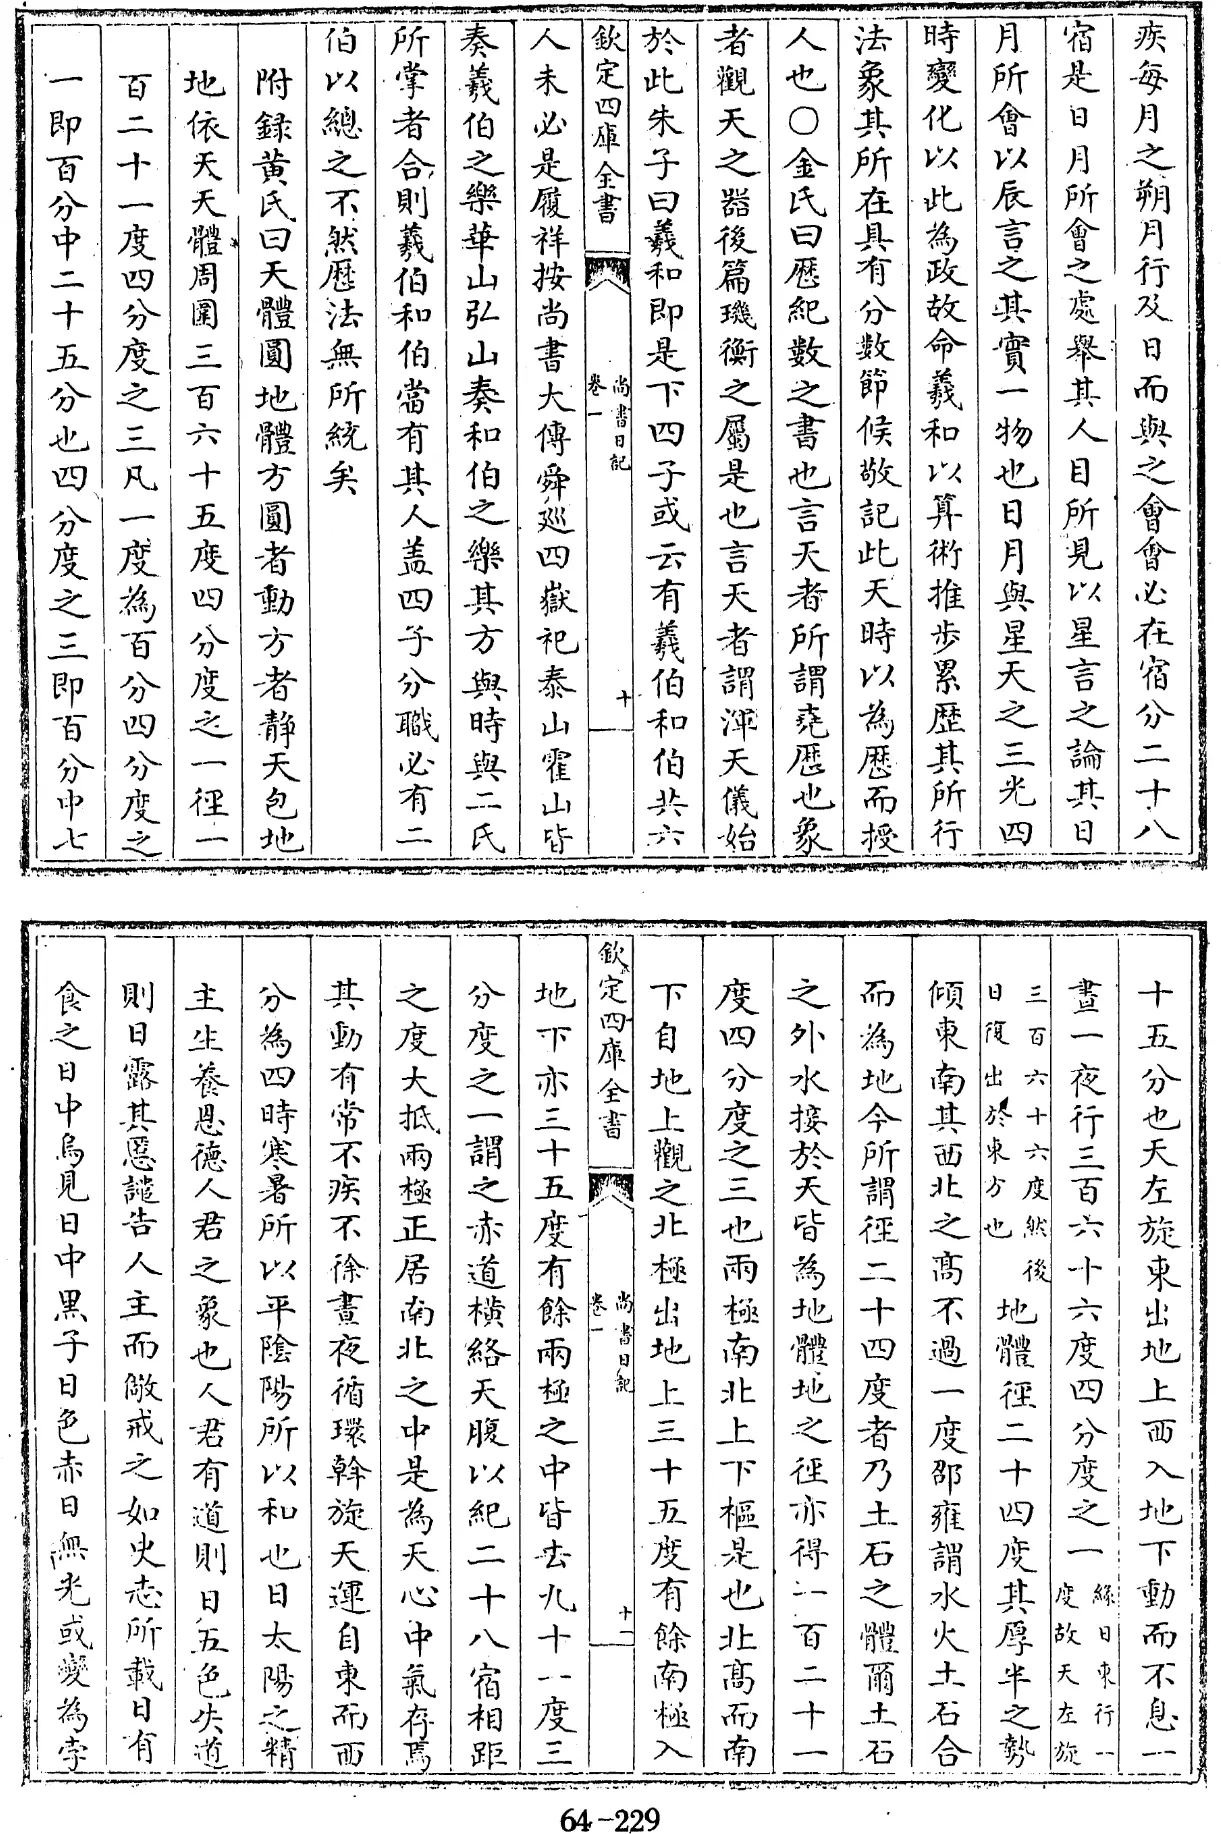 疾每月之朔月行及日而與之會會必在宿分二十八
宿是日月所會之處舉其人目所見以星言之論其日
月所會以辰言之其實一物也日月與星天之三光四
時變化以此為政故命羲和以算術推步累歴其所行
法象其所在具有分數節候敬記此天時以為歴而授
人也○金氏曰歴紀數之書也言天者所謂堯歴也象
者觀天之器後篇璣衡之屬是也言天者謂渾天儀始
於此朱子曰羲和即是下四子或云有羲伯和伯共六
欽定四庫全書
尚書日記
卷一
十
人未必是履祥按尚書大傳舜廵四嶽祀泰山霍山皆
奏羲伯之樂華山弘山奏和伯之樂其方與時與二氏
所掌者合則羲伯和伯當有其人盖四子分職必有二
伯以總之不然歴法無所統矣
附録黄氏曰天體圓地體方圓者動方者静天包地
地依天天體周圍三百六十五度四分度之一徑一
百二十一度四分度之三凡一度為百分四分度之
一即百分中二十五分也四分度之三即百分中七
十五分也天左旋東出地上西入地下動而不息一
晝一夜行三百六十六度四分度之一緣日東行一
度故天左旋
三百六十六度然後
日復出於東方也
地體徑二十四度其厚半之勢
傾東南其西北之髙不過一度邵雍謂水火土石合
而為地今所謂徑二十四度者乃土石之體爾土石
之外水接於天皆為地體地之徑亦得一百二十一
度四分度之三也兩極南北上下樞是也北髙而南
下自地上觀之北極出地上三十五度有餘南極入
欽定四庫全書
尚書日記
卷一
十一
地下亦三十五度有餘兩極之中皆去九十一度三
分度之一謂之赤道橫絡天腹以紀二十八宿相距
之度大抵兩極正居南北之中是為天心中氣存焉
其動有常不疾不徐晝夜循環斡旋天運自東而西
分為四時寒暑所以平陰陽所以和也日太陽之精
主生養恩德人君之象也人君有道則日五色失道
則日露其慝譴告人主而儆戒之如史志所載日有
食之日中烏見日中黑子日色赤日無光或變為孛
64-229